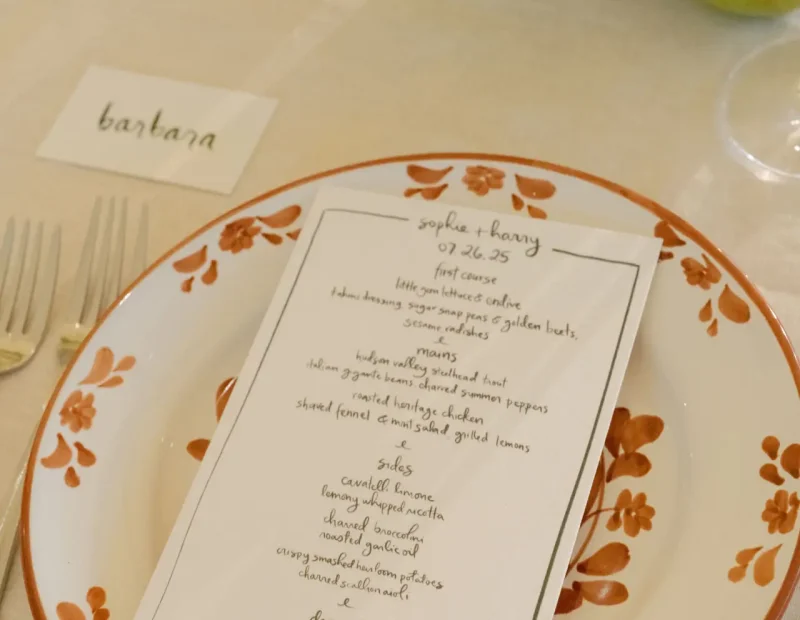 barbara
sophie + harry
07.26.25
first course
little gem lettuce & endive
tahini dressing, sugar snap peas & golden beets,
sesame radishes
&
mains
hudson valley steelhead trout
italian gigante beans, charred summer peppers
roasted heritage chicken
shaved fennel & mint salad, grilled lemons
&
sides
cavatelli limone
lemony whipped ricotta
charred broccolini
roasted garlic oil
crispy smashed heirloom potatoes
charred scallion aioli
&